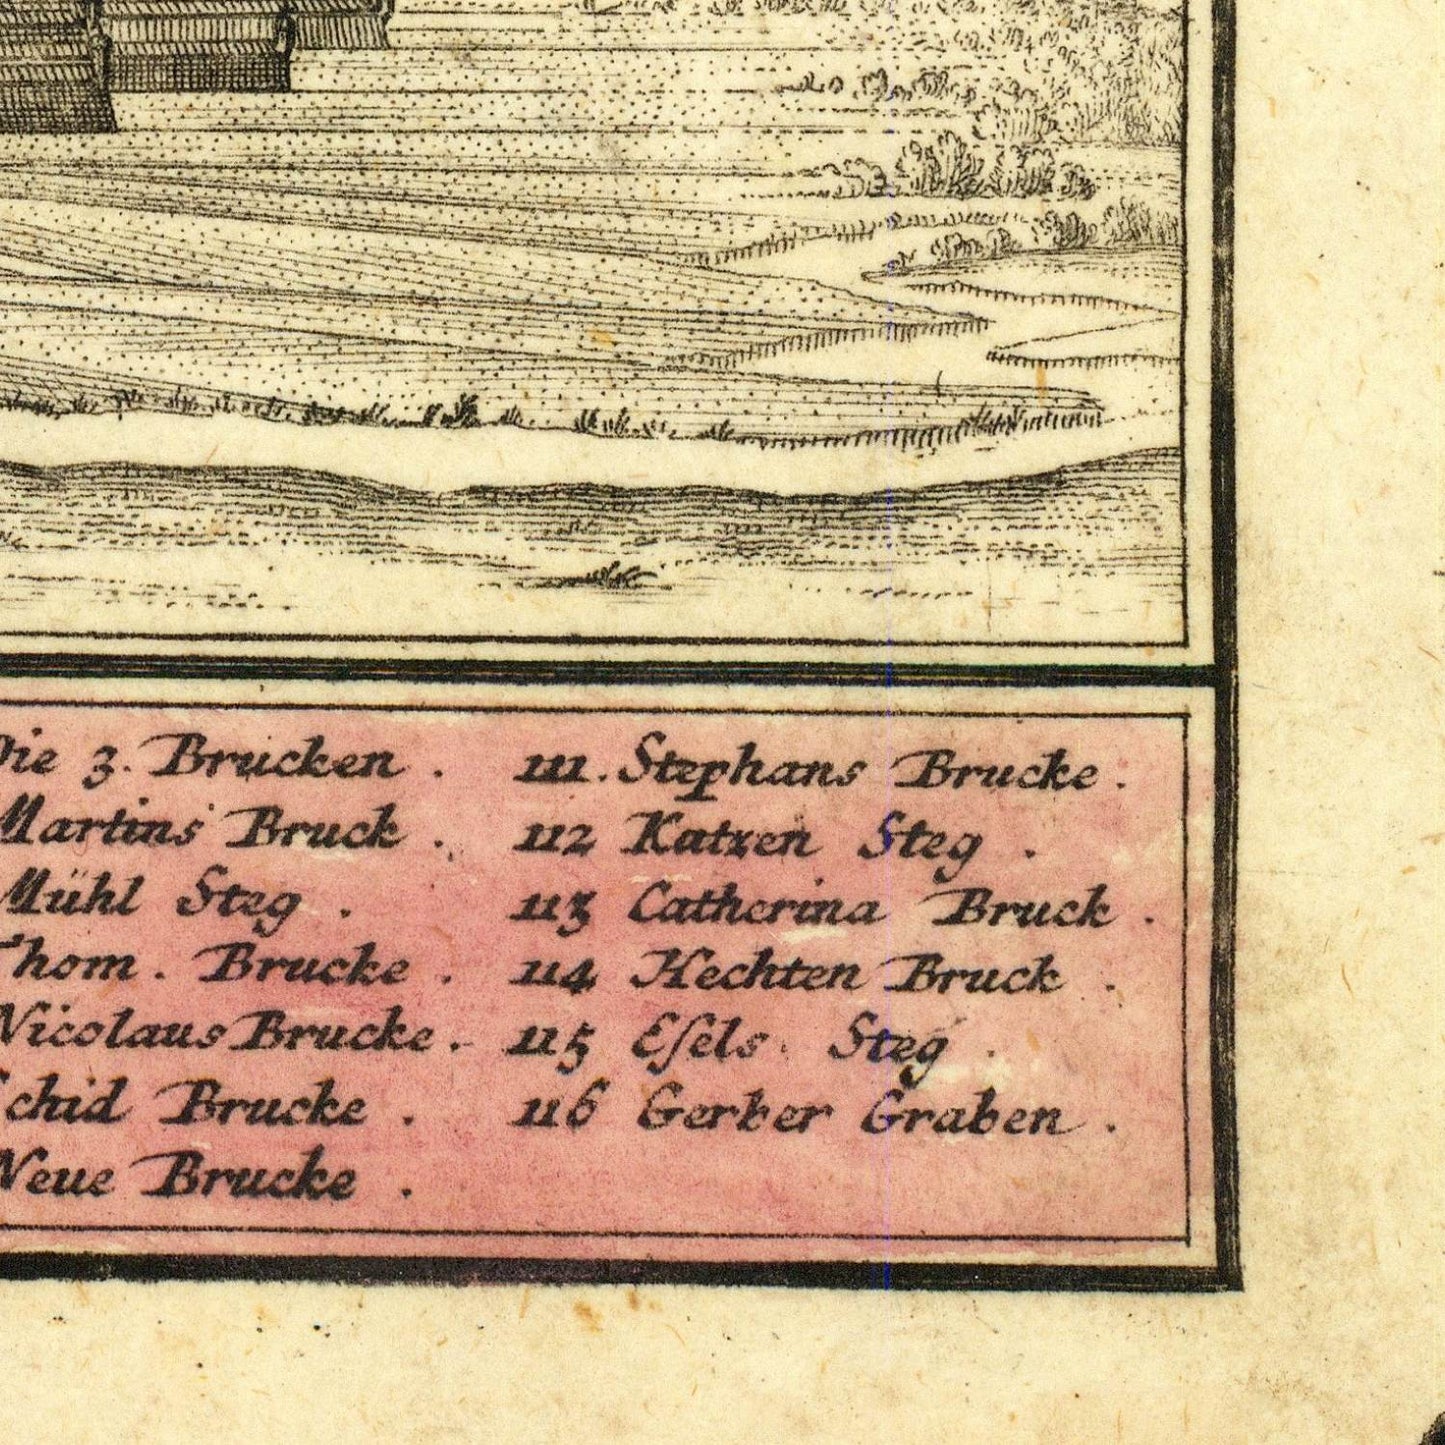 Die 3. Brucken .
Martins Bruck .
Mühl Steg .
Thom . Brucke .
Nicolaus Brucke .
Schid Brucke .
Neue Brucke .
111. Stephans Brucke .
112 Katzen Steg .
113 Catherina Bruck .
114 Hechten Bruck .
115 Eſels Steg .
116 Gerber Graben .